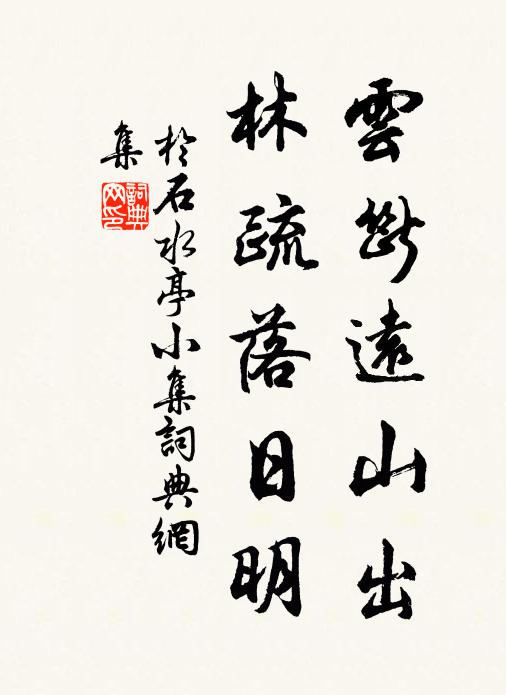 雲斷遠山出
林疏落日明
於石水亭小集詞典網
集
詞典網印